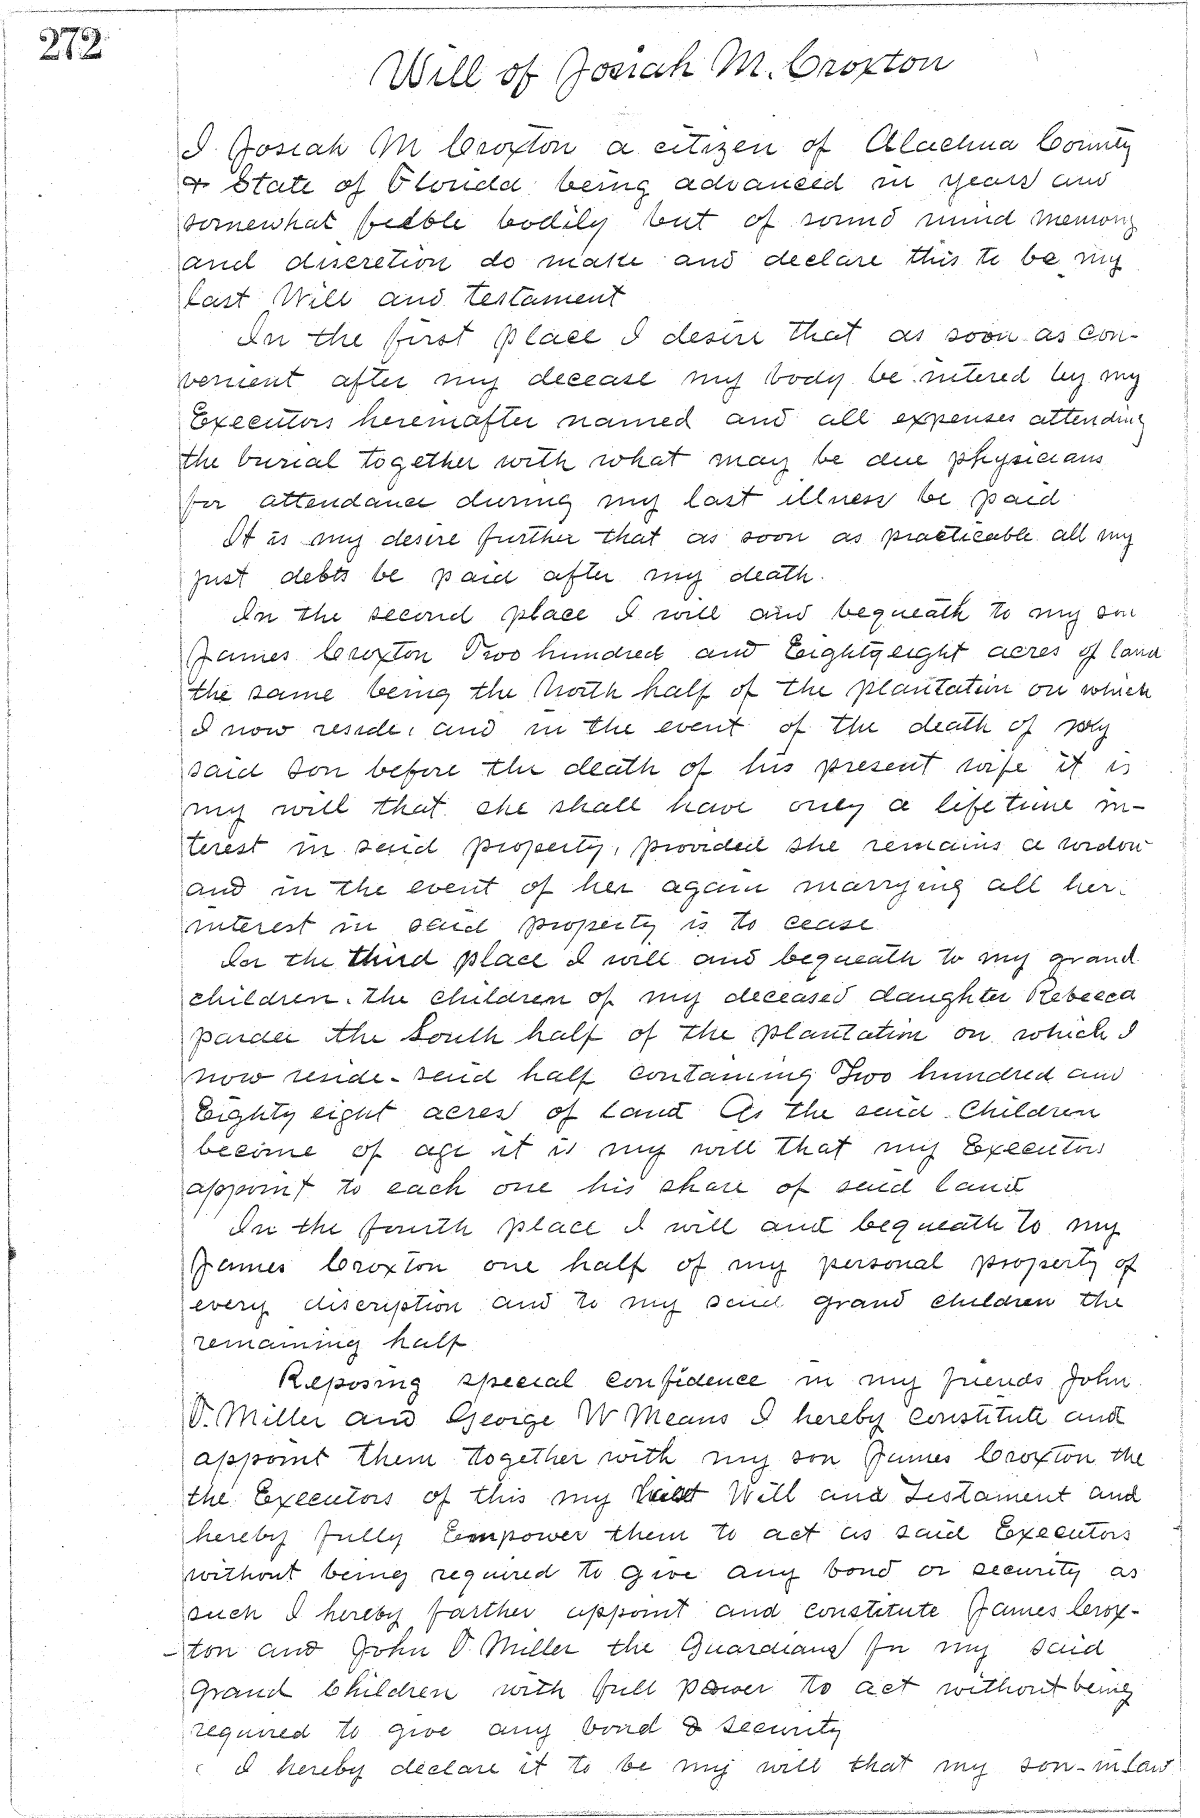 272
Will of Josiah M. Croxton
I Josiah M Croxton a citizen of Alachua County
& State of Florida being advanced in years and
somewhat feeble bodily but of sound mind memory
and discretion do make and declare this to be my
last Will and testament
In the first place I desire that as soon as con-
venient after my decease my body be intered by my
Executors hereinafter named and all expenses attending
the burial together with what may be due physicians
for attendance during my last illness be paid
It is my desire further that as soon as practicable all my
just debts be paid after my death.
In the second place I will and bequeath to my son
James Croxton Two hundred and Eighty eight acres of land
the same being the North half of the plantation on which
I now reside, and in the event of the death of my
said son before the death of his present wife it is
my will that she shall have only a life time in-
terest in said property, provided she remains a widow
and in the event of her again marrying all her
interest in said property is to cease
In the third place I will and bequeath to my grand
children. the children of my deceased daughter Rebecca
the South half of the plantation on which I
now reside - said half containing Two hundred and
Eighty eight acres of land As the said Children
become of age it is my will that my Executors
appoint to each one his share of said land
In the fourth place I will and bequeath to my
James Croxton one half of my personal property of
every discription and to my said grand children the
remaining half
Reposing special confidence in my friends John
V. Miller and George W Means I hereby constitute and
appoint them together with my son James Croxton the
the Executors of this my last Will and Testament and
hereby fully Empower them to act as said Executors
without being required to give any bond or security as
such I hereby farther appoint and constitute James Crox-
-ton and John V. Miller the Guardians for my said
Grand Children with full power to act without being
required to give any bond & security
I hereby declare it to be my will that my son-in Law